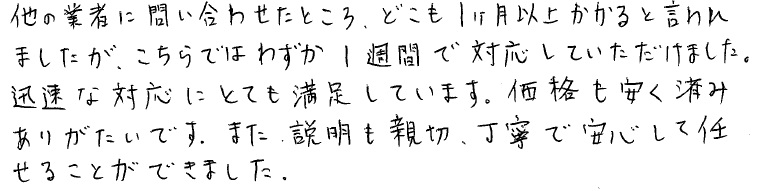 他の業者に問い合わせたところ、どこも1ヶ月以上かかると言われ
ましたが、こちらではわずか1週間で対応していただけました。
迅速な対応にとても満足しています。価格も安く済み
ありがたいです。また、説明も親切、丁寧で安心して任
せることができました。